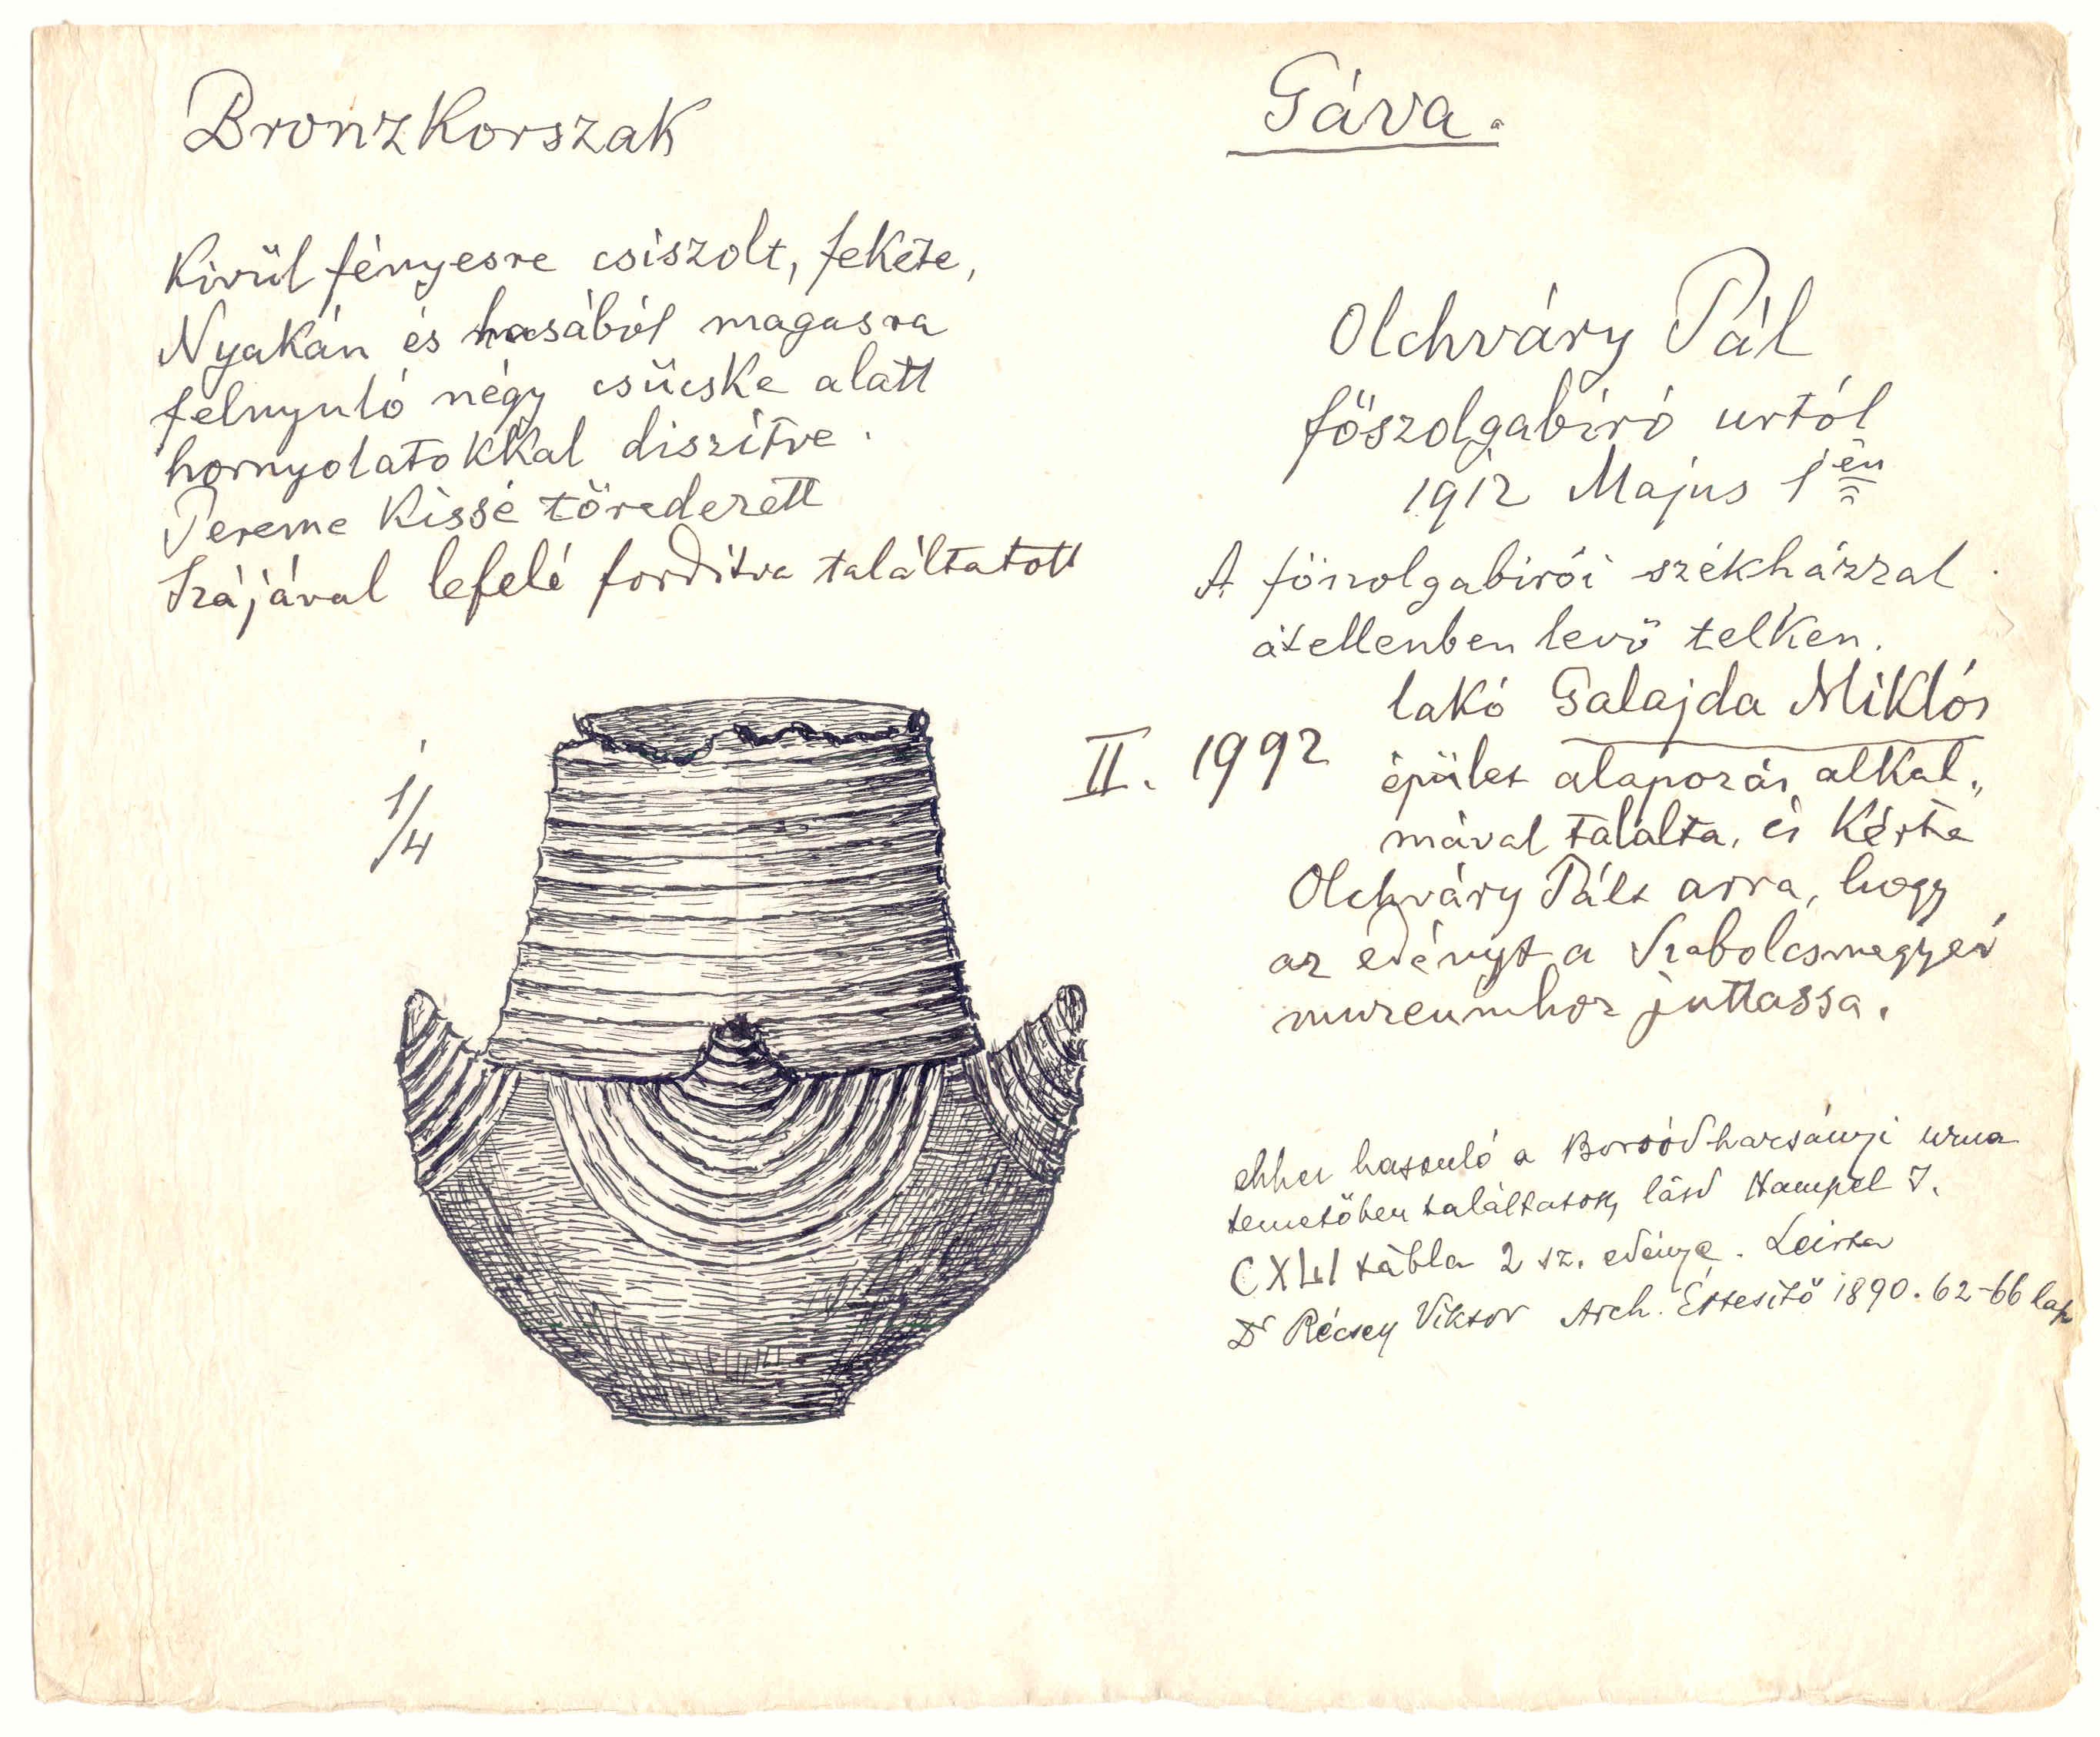 Bronzkorszak
Kivül fényesre csiszolt, fekete,
Nyakán és hasából magasra
felnyuló négy csücske alatt
hornyolatokkal diszítve.
Pereme kissé töredezett
Szájával lefelé fordítva találtatott
1/4
Gáva.
Olchváry Pál
főszolgabíró urtól
1912 Majus 1 én
A főszolgabirói székházzal
átellenben levő telken.
lakó Galajda Miklós
II. 1992
épület alapozás alkal„
mával találta, és kérte
Olchváry Pált arra, hogy
az edényt a Szabolcsmegyei
muzeumhoz juttassa.
ehhez hasonló a Borsódharsányi urna
temetőben találtatott, lásd Hampel J.
CXLI tábla 2 sz. edénye. Leirta
Dr Récsey Viktor Arch. Értesítő 1890. 62-66 lap